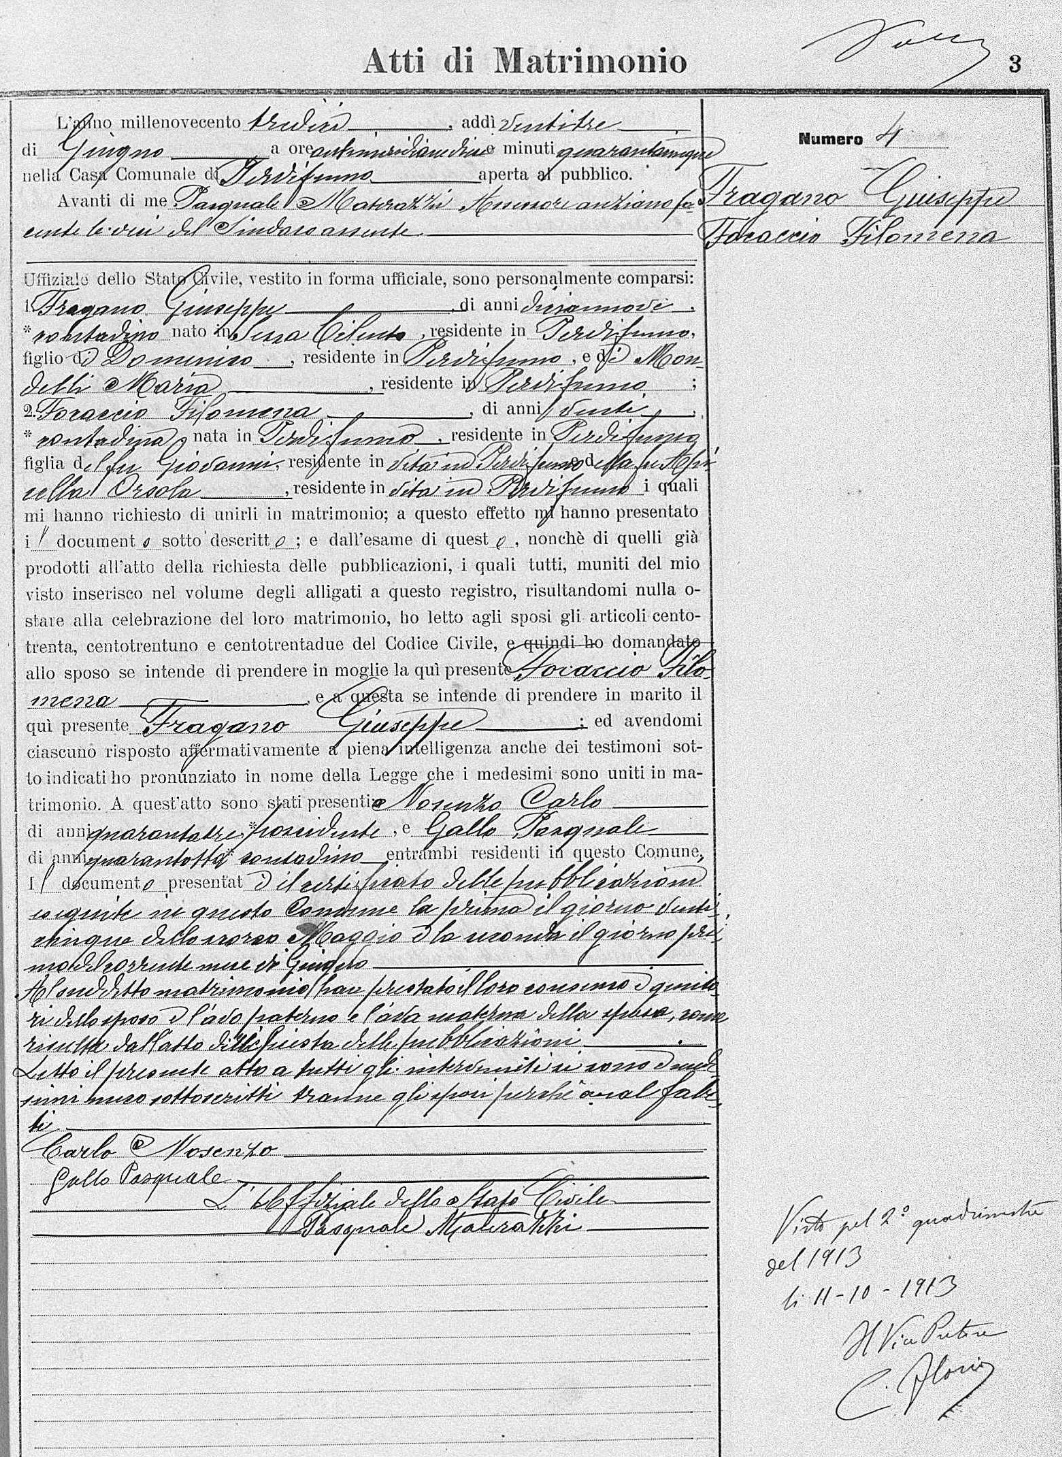 Atti di Matrimonio
3
L'anno millenovecento tredici, addì ventitre
di Giugno a ore antimeridiane dieci e minuti quarantacinque
nella Casa Comunale di Perdifumo aperta al pubblico.
Avanti di me Pasquale Materazzi Assessore anziano fa-
cente le veci del Sindaco assente
Uffiziale dello Stato Civile, vestito in forma ufficiale, sono personalmente comparsi:
1. Fragano Giuseppe, di anni diciannove,
* contadino nato in Sessa Cilento, residente in Perdifumo,
figlio di Domenico, residente in Perdifumo, e di Mon-
delli Maria, residente in Perdifumo;
2. Foraccio Filomena, di anni venti,
* contadina, nata in Perdifumo, residente in Perdifumo
figlia del fu Giovanni, residente in vita in Perdifumo e della fu Api-
cella Orsola, residente in vita in Perdifumo i quali
mi hanno richiesto di unirli in matrimonio; a questo effetto mi hanno presentato
il documento sotto descritto; e dall'esame di questo, nonchè di quelli già
prodotti all'atto della richiesta delle pubblicazioni, i quali tutti, muniti del mio
visto inserisco nel volume degli alligati a questo registro, risultandomi nulla o-
stare alla celebrazione del loro matrimonio, ho letto agli sposi gli articoli cento-
trenta, centotrentuno e centotrentadue del Codice Civile, e quindi ho domandato
allo sposo se intende di prendere in moglie la quì presente Foraccio Filo-
mena, e a questa se intende di prendere in marito il
quì presente Fragano Giuseppe; ed avendomi
ciascuno risposto affermativamente a piena intelligenza anche dei testimoni sot-
to indicati ho pronunziato in nome della Legge che i medesimi sono uniti in ma-
trimonio. A quest'atto sono stati presenti Nosenzo Carlo
di anni quarantatre, *possidente, e Gallo Pasquale
di anni quarantotto* contadino entrambi residenti in questo Comune,
Il documento presentato è il certificato delle pubblicazioni
eseguite in questo Comune la prima il giorno venti-
cinque dello scorso Maggio e la seconda il giorno pri-
mo del corrente mese di Giugno
Al suddetto matrimonio han prestato il loro consenso i genito-
ri dello sposo e l'avo paterno e l'ava materna della sposa, come
risulta dall'atto di richiesta delle pubblicazioni
Letto il presente atto a tutti gl'intervenuti si sono i mede-
simi meco sottoscritti tranne gli sposi perchè analfabe-
ti.
Carlo Nosenzo
Gallo Pasquale
L'Uffiziale dello Stato Civile
Pasquale Materazzi
Numero 4
Fragano Giuseppe
Foraccio Filomena
Visto pel 2º quadrimestre
del 1913
li 11-10-1913
Il Vice Pretore